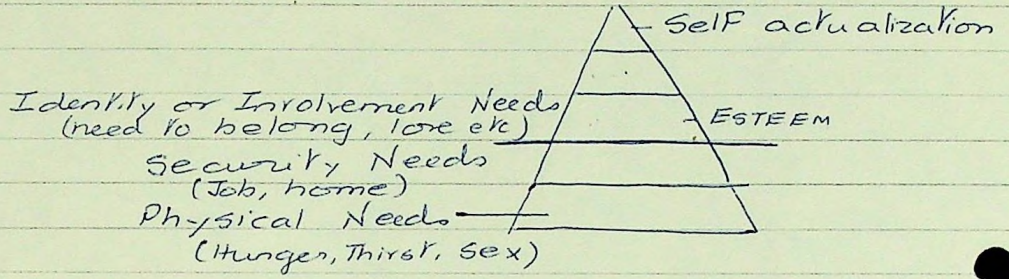 Self actualization
Identity or Involvement Needs
(need to belong, love etc)
ESTEEM
Security Needs
(Job, home)
Physical Needs
(Hunger, Thirst, Sex)